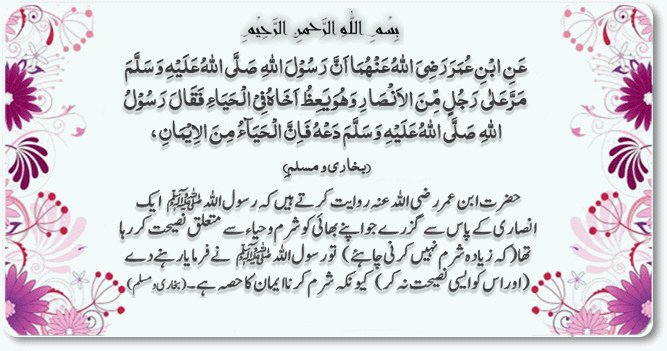 بِسْمِ اللّٰهِ الرَّحْمٰنِ الرَّحِيْمِ
عَنِ ابْنِ عُمَرَ رَضِیَ اللهُ عَنْهُمَا اَنَّ رَسُوْلَ اللهِ صَلَّى اللهُ عَلَيْهِ وَسَلَّمَ
مَرَّ عَلٰى رَجُلٍ مِّنَ الْاَنْصَارِ وَهُوَ يَعِظُ اَخَاهُ فِی الْحَيَاءِ فَقَالَ رَسُوْلُ
اللهِ صَلَّى اللهُ عَلَيْهِ وَسَلَّمَ دَعْهُ فَاِنَّ الْحَيَآءَ مِنَ الْاِيْمَانِ،
(بخاری و مسلم)
حضرت ابن عمر رضی اللہ عنہ روایت کرتے ہیں کہ رسول اللہ ﷺ ایک
انصاری کے پاس سے گزرے جو اپنے بھائی کو شرم و حیاء سے متعلق نصیحت کر رہا
تھا (کہ زیادہ شرم نہیں کرنی چاہئے) تو رسول اللہ ﷺ نے فرمایا رہنے دے
(اور اس کو ایسی نصیحت نہ کر) کیونکہ شرم کرنا ایمان کا حصہ ہے۔ (بخاری و مسلم)